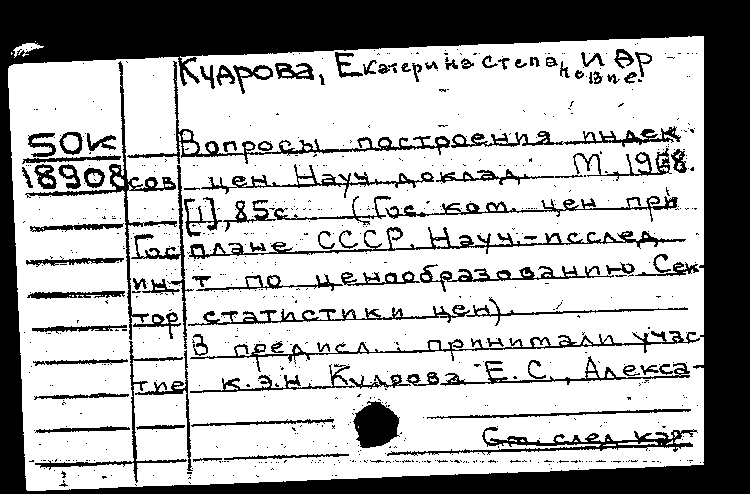 Кудрова, Екатерина Степановна и др
50К
18908
Вопросы построения индек-
сов цен. Науч. доклад. М., 1968.
[1], 85с. (Гос. ком. цен при
Госплане СССР. Науч.-исслед.
ин-т по ценообразованию. Сек-
тор статистики цен).
В предисл.: принимали учас-
тие к.э.н. Кудрова Е.С., Алекса-
См. след карт